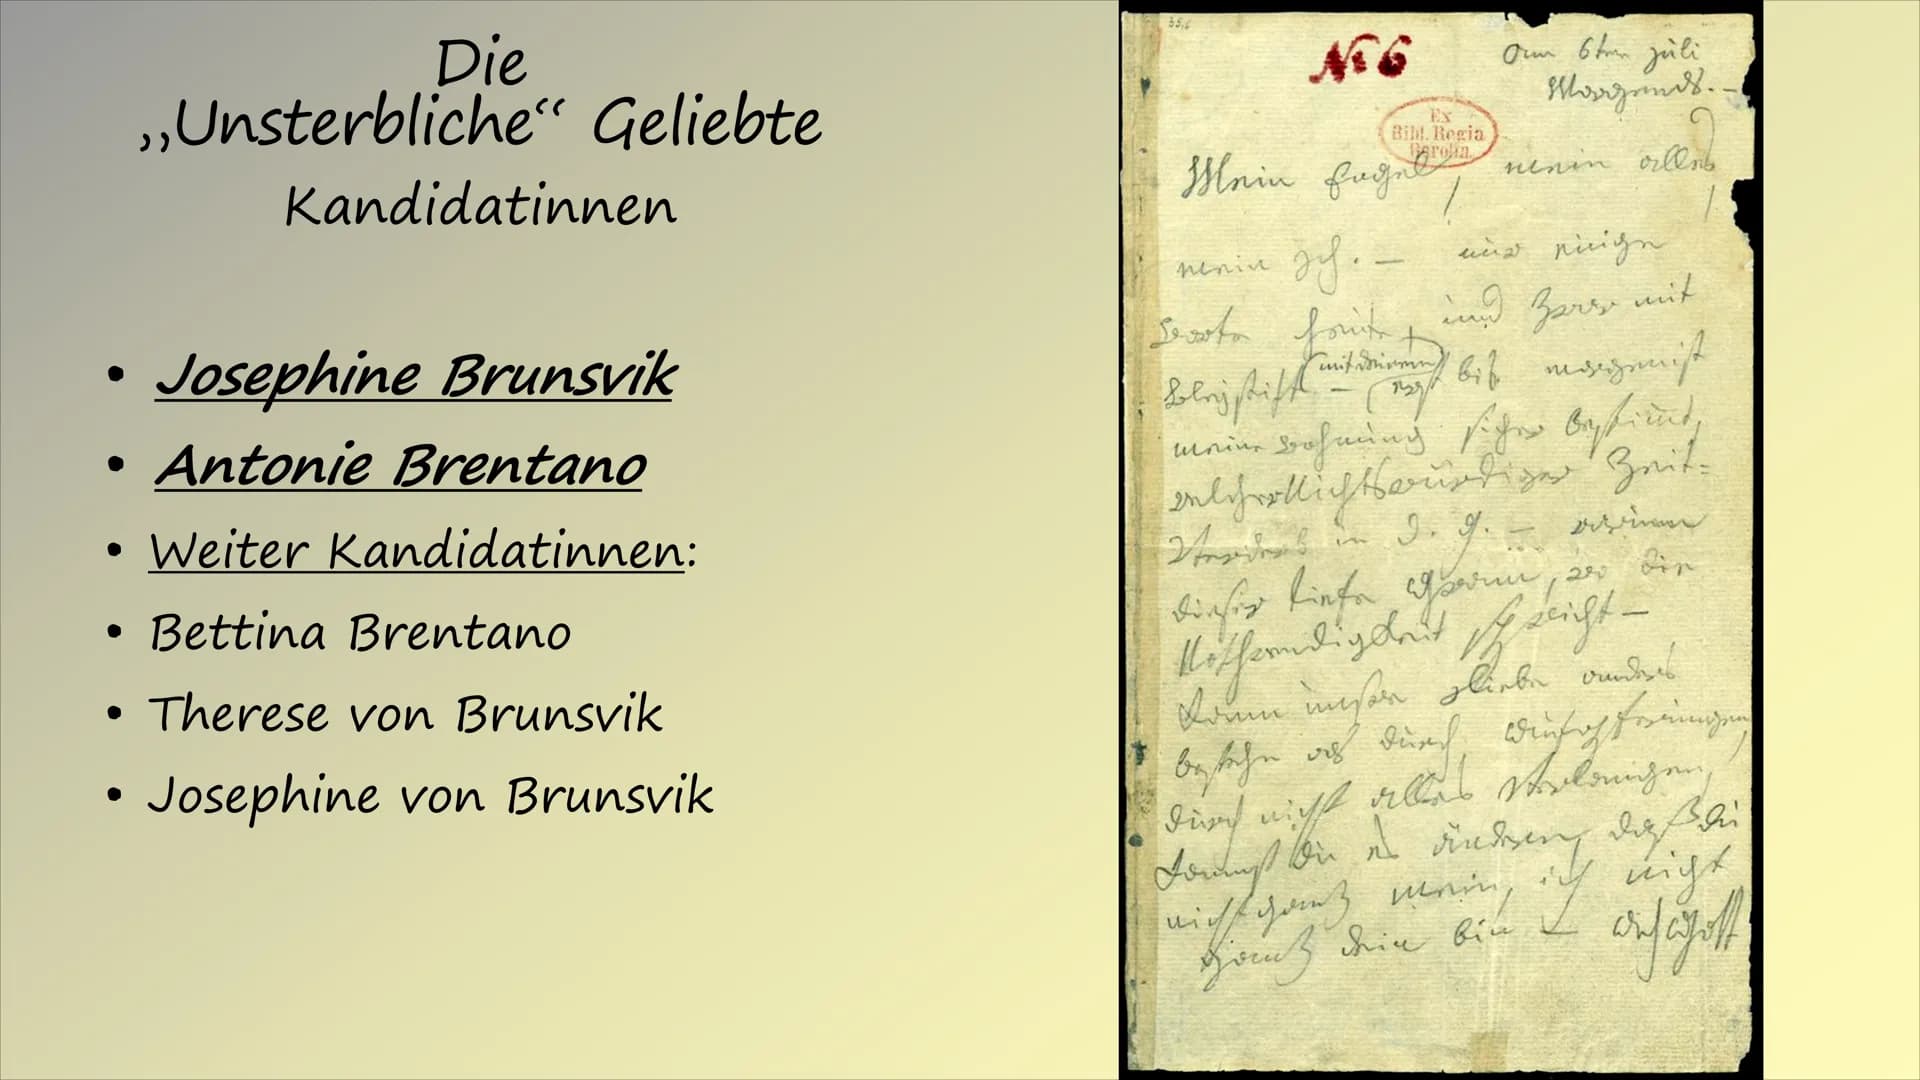 Die
„Unsterbliche“ Geliebte
Kandidatinnen
• Josephine Brunsvik
• Antonie Brentano
• Weiter Kandidatinnen:
• Bettina Brentano
• Therese von Brunsvik
• Josephine von Brunsvik
35,6
№ 6
am 6ten juli
Morgends. –
Ex
Bibl. Regia
Berolin.
Mein Engel, mein alles,
mein Ich. – nur einige
Worte heute, und zwar mit
Bleystift – (mit deinem) bis morgen ist
meine wohnung sicher bestimt,
welcher Nichtswürdiger Zeit-
verderb in d. g. – warum
dieser tiefe Gram, wo die
Nothwendigkeit spricht –
Kann unsre Liebe anders
bestehn als durch Aufopferungen,
durch nicht alles verlangen,
kannst du es ändern, daß du
nicht ganz mein, ich nicht
ganz dein bin – Ach Gott